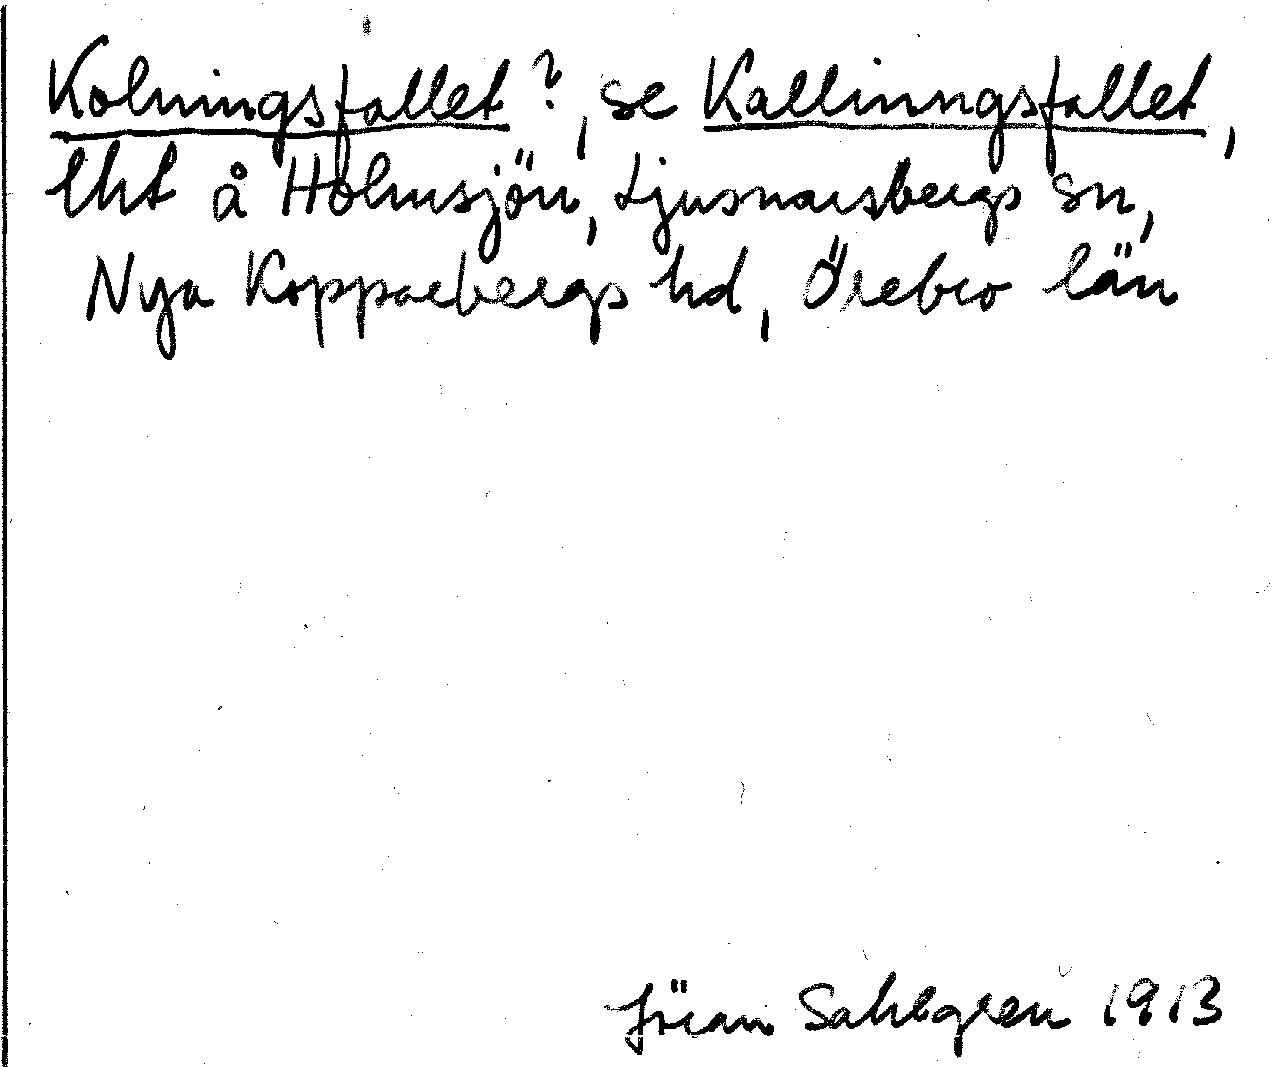 Kolningsfallet?, se Kallinngsfallet,
lht å Holmsjön, Ljusnarsbergs sn,
Nya Kopparbergs hd, Örebro län
Jöran Sahlgren 1913